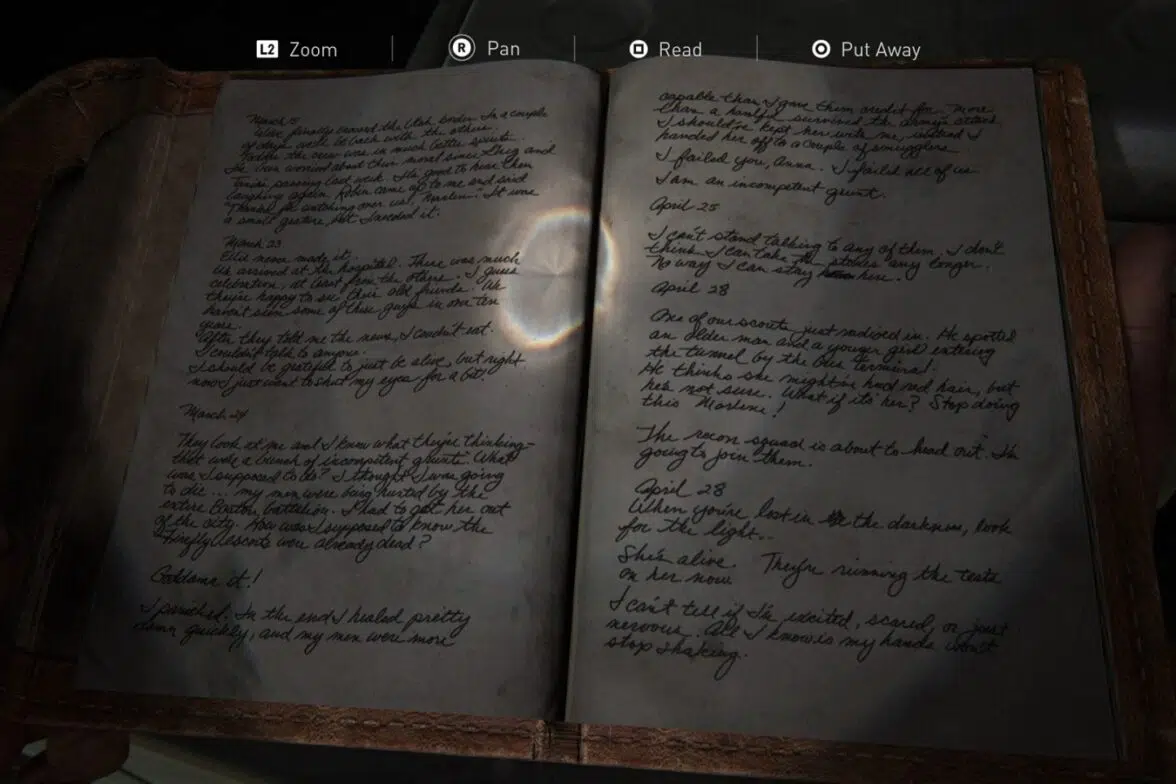 L2 Zoom
R Pan
Read
Put Away
March
We've finally crossed the Utah border. In a couple
of days we'll be back with the others.
Today the crew was in much better spirits.
I've been worried about their moral since Greg and
passing last week. It's good to hear them
laughing again. Robin came up to me and said
"Thanks for watching over us, Marlene." It was
a small gesture, but I needed it.
March 23
Ellie never made it.
We arrived at the hospital. There was much
celebration, at least from the others. I guess
they're happy to see their old friends. We
haven't seen some of these guys in over ten
years.
After they told me the news, I couldn't eat.
I couldn't talk to anyone.
I should be grateful to just be alive, but right
now I just want to shut my eyes for a bit.
March 24
They look at me and I know what they're thinking-
that we're a bunch of incompetent grunts. What
was I supposed to do? I thought I was going
to die... my men were being hunted by the
entire Boston battalion. I had to get her out
of the city. How was I supposed to know the
Firefly escorts were already dead?
Goddamn it!
I panicked. In the end I healed pretty
damn quickly, and my men were more
capable than I gave them credit for. More
than a handful survived the army's attack.
I should've kept her with me, instead I
handed her off to a couple of smugglers.
I failed you, Anna. I failed all of us.
I am an incompetent grunt.
April 25
I can't stand talking to any of them. I don't
think I can take the stares any longer.
No way I can stay here.
April 28
One of our scouts just radioed in. He spotted
an older man and a younger girl entering
the tunnel by the bus terminal.
He thinks she might've had red hair, but
he's not sure. What if it's her? Stop doing
this Marlene!
The recon squad is about to head out. I'm
going to join them.
April 28
When you're lost in the darkness, look
for the light...
She's alive. They're running the tests
on her now.
I can't tell if I'm excited, scared, or just
nervous. All I know is my hands won't
stop shaking.